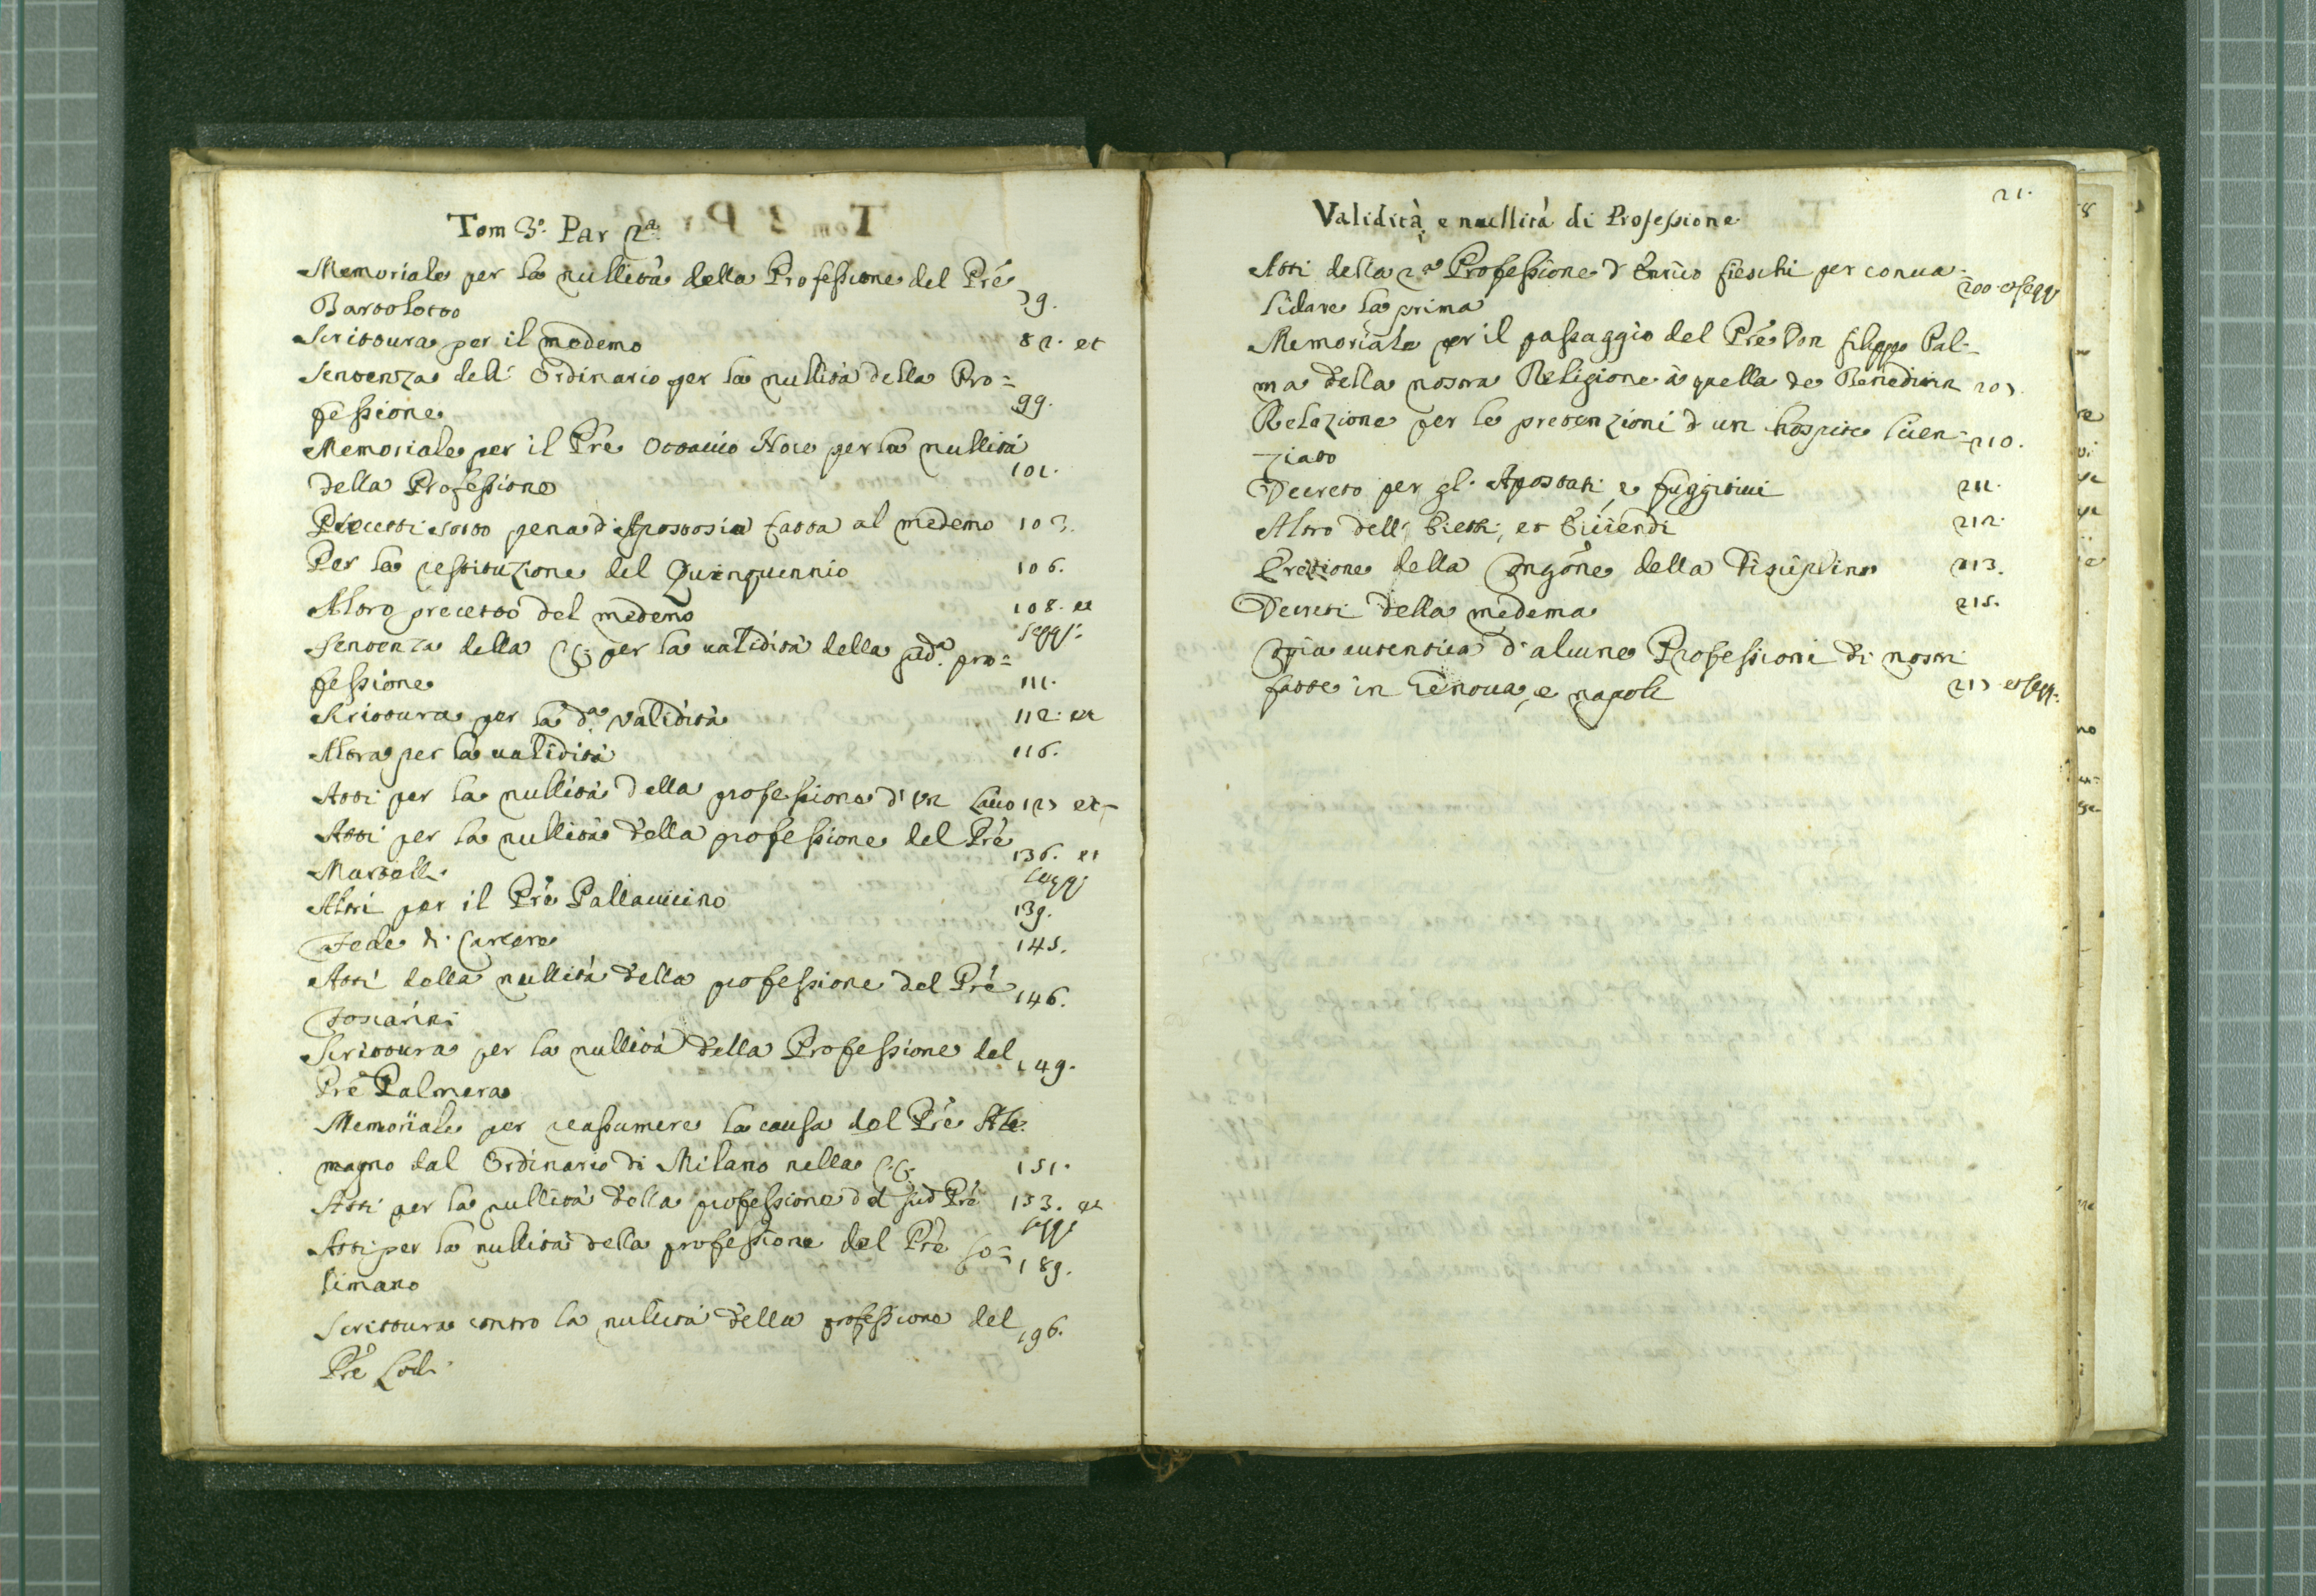 Tom 3.º Par 2.ª
Memoriale per la nullità della Professione del Prê
Bartolotto 79.
Scrittura per il medemo 82. et
Sentenza dell' Ordinario per la nullità della Pro=
fessione 99.
Memoriale per il Prê Ottavio Noce per la nullità
della Professione 101.
Precetti sotto pena d'Apostosia fatta al medemo 103.
Per la restituzione del Quinquennio 106.
Altro precetto del medemo 108. et
Sentenza della per la validità della sud.ª pro= seqq.
fessione 111.
Scrittura per la d.ª validità 112. et
Altra per la validità 116.
Atti per la nullità della professione d'un laico 127 et
Atti per la nullità della professione del Prê
Martelli 136. et
Altri per il Prê Pallavicino seqq.
139.
Fede di Carcere 145.
Atti della nullità della professione del Prê
Toscanini 146.
Scrittura per la nullità della Professione del
Prê Palmera 149.
Memoriale per reassumere la causa del Prê Ale=
magno dal Ordinario di Milano nella 151.
Atti per la nullità della professione del sud Prê 153. et
Atti per la nullità della professione del Prê So= seqq
limano 189.
Scrittura contro la nullità della professione del
Prê Lodi 196.
21.
Validità, e nullità di Professione
Atti della 2.ª Professione d'Enrico Fieschi per conva=
lidare la prima 200. et seqq
Memoriale per il passaggio del Prê Don Filippo Pal=
ma della nostra Religione à quella de Benedittin 207.
Relazione per le pretenzioni d'un hospite licen=
ziato 210.
Decreto per gl'Apostati, e fuggitivi 211.
Altro dell' Eietti, et Eiiciendi 212.
Erezione della Congõne della Disciplina 213.
Decreti della medema 215.
Copia autentica d'alcune Professioni di nostri
fatte in Genova, e napoli 217 et seqq.